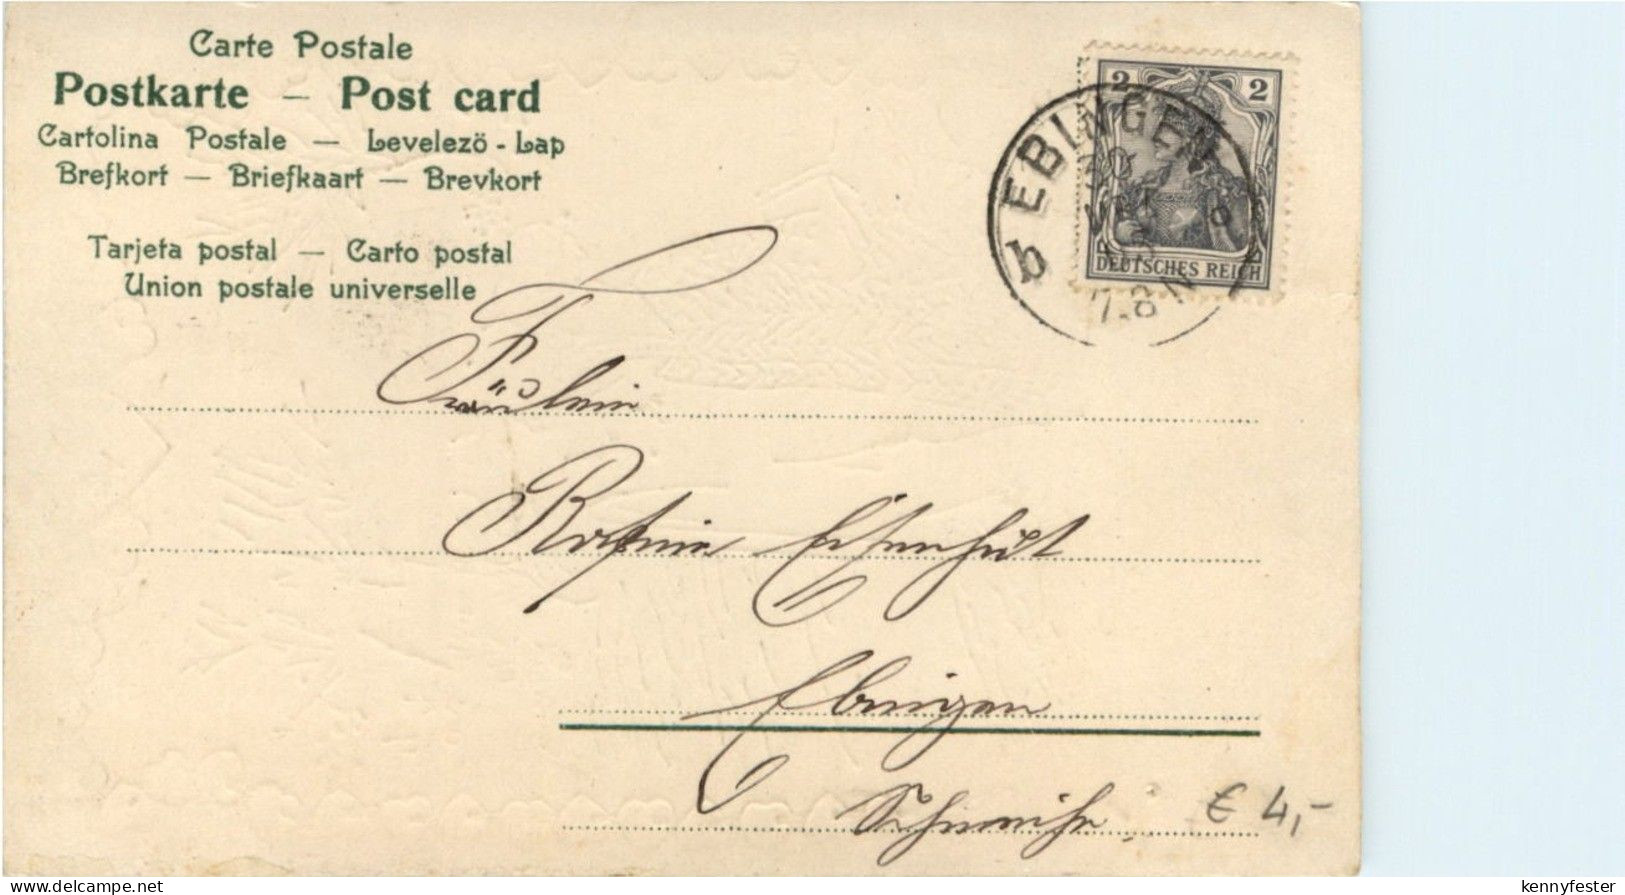 Carte Postale
Postkarte – Post card
Cartolina Postale – Levelező-Lap
Brefkort – Briefkaart – Brevkort
Tarjeta postal – Carto postal
Union postale universelle
2 2
DEUTSCHES REICH
EBINGEN
b
7-8 N
Fräulein
Ebingen
€ 4,-
www.delcampe.net
kennyfester